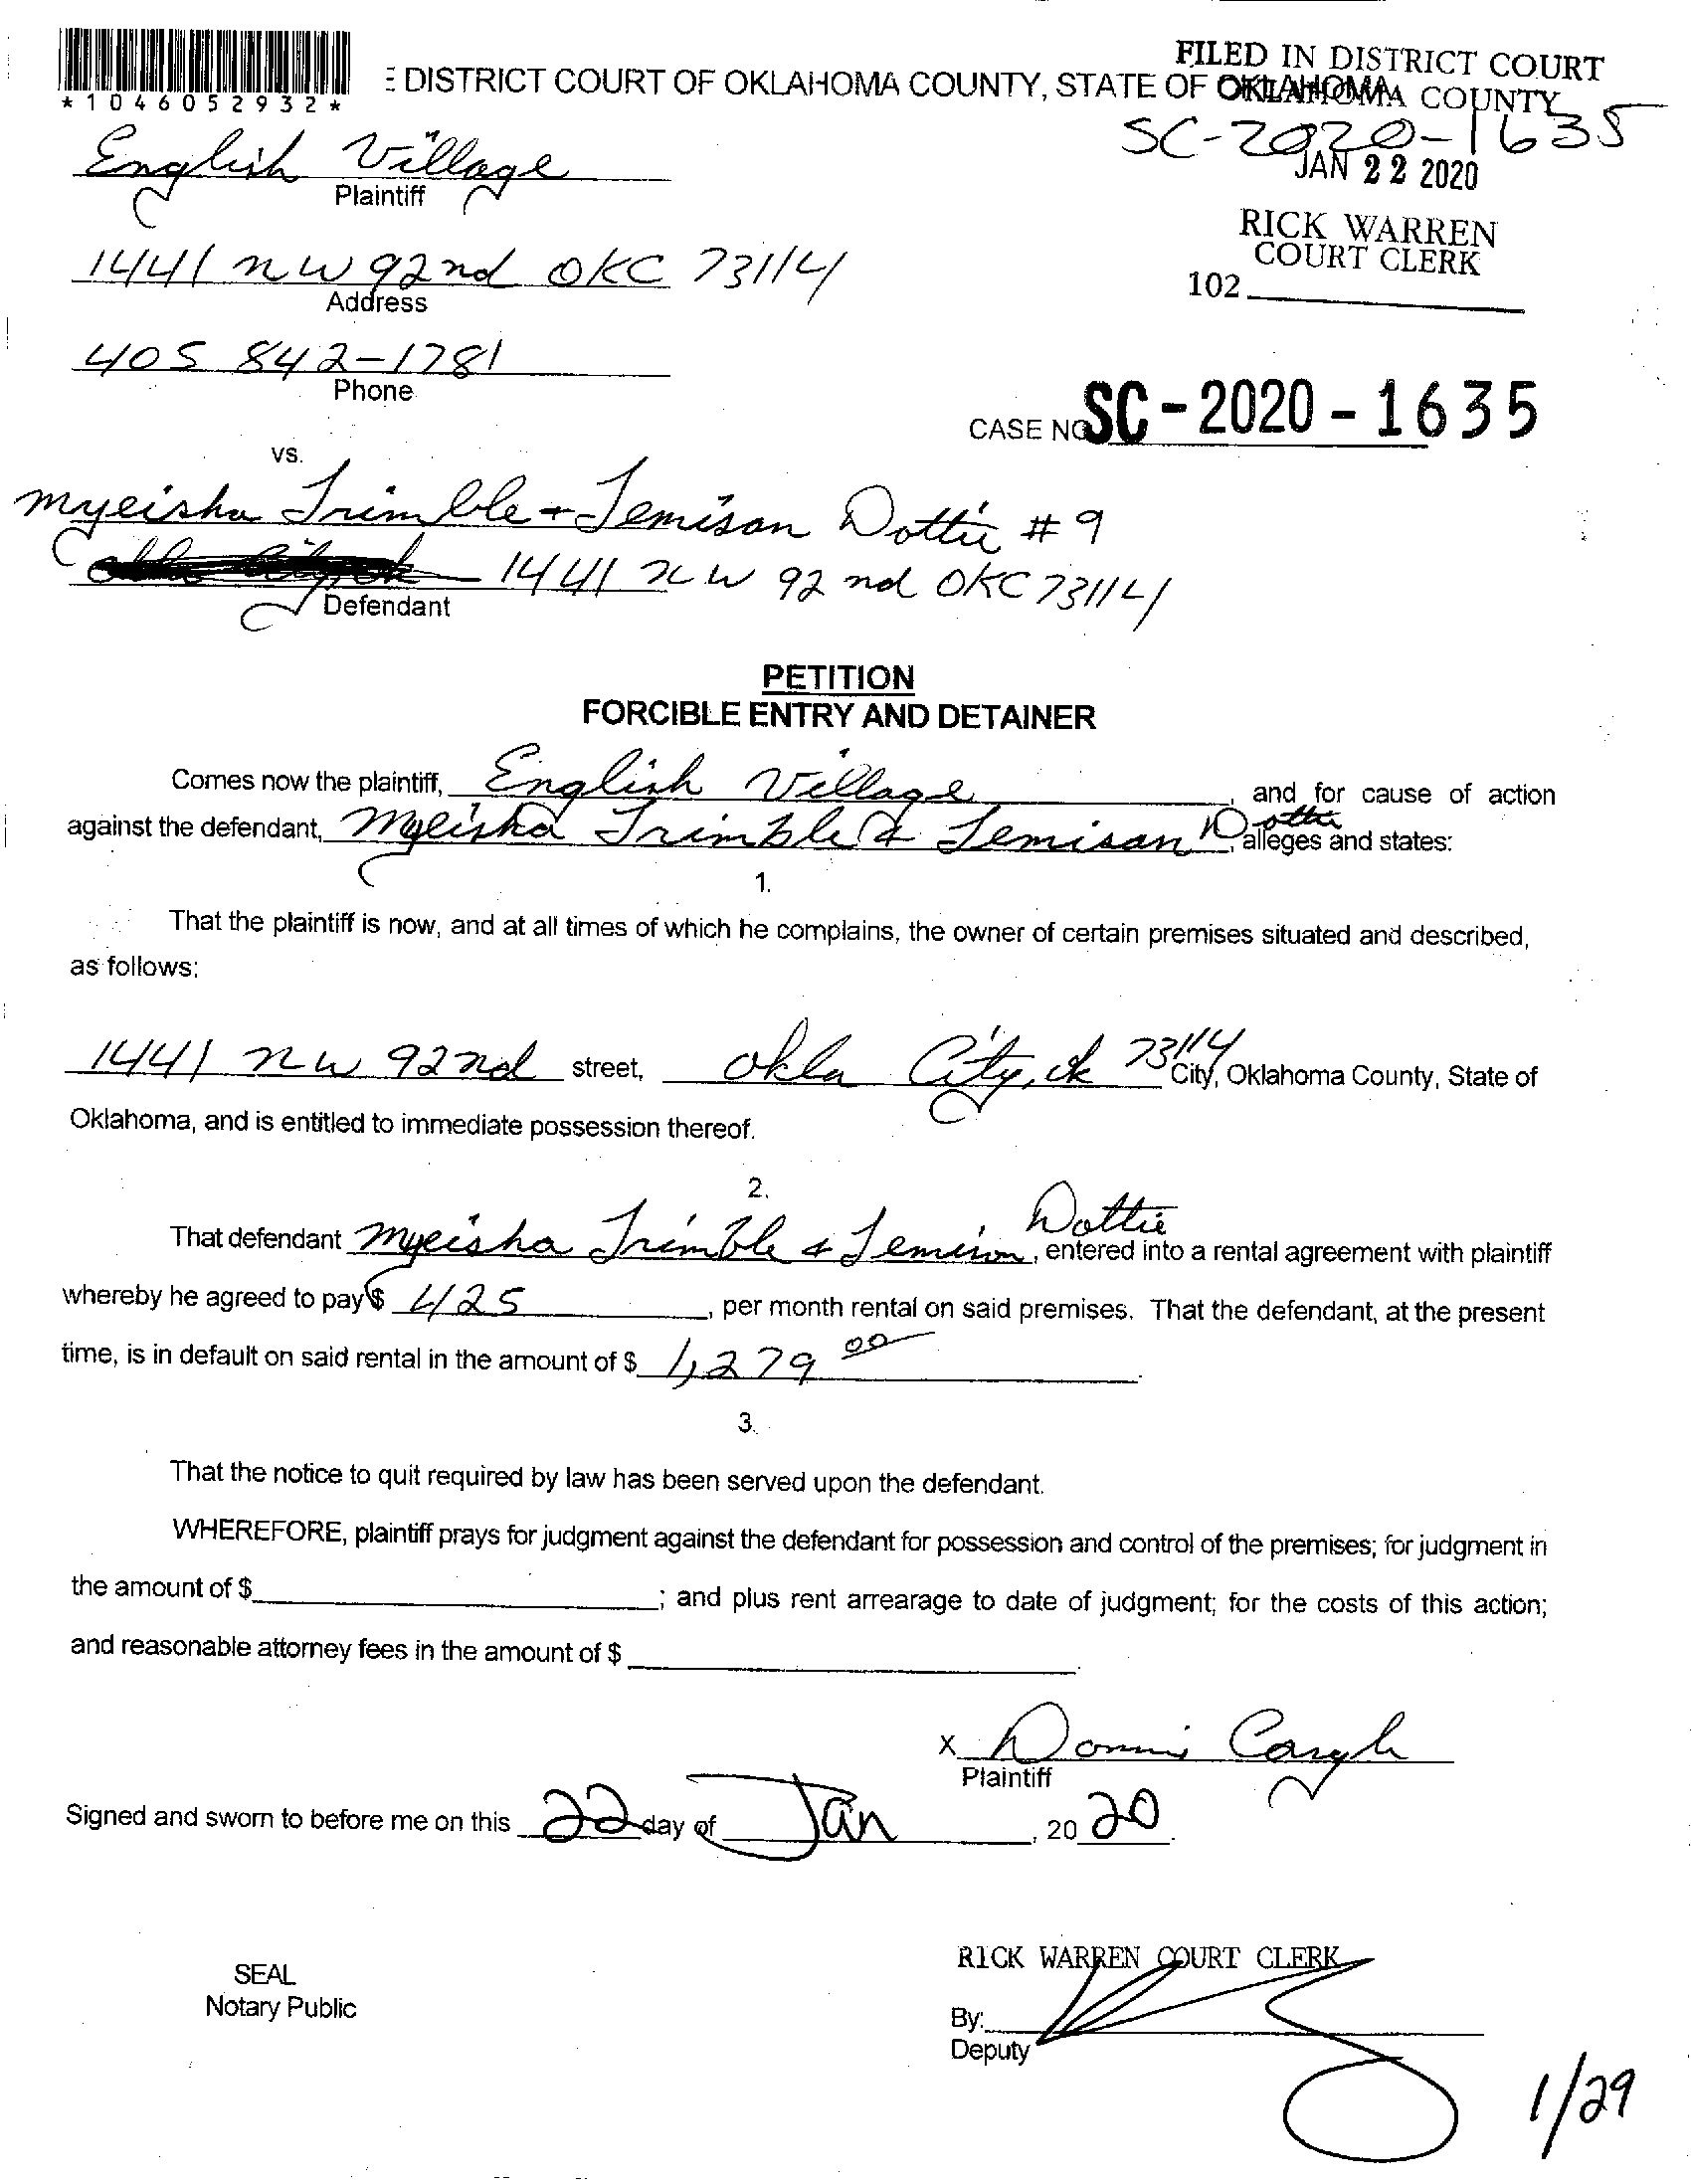 *1046052932*
E DISTRICT COURT OF OKLAHOMA COUNTY, STATE OF OKLAHOMA
FILED IN DISTRICT COURT
OKLAHOMA COUNTY
SC-2020-1635
JAN 22 2020
RICK WARREN
COURT CLERK
102
English Village
Plaintiff
1441 NW 92nd OKC 73114
Address
405 842-1781
Phone
CASE NO SC-2020-1635
vs.
Myeisha Trimble + Jemison Dottie #9
1441 NW 92nd OKC 73114
Defendant
PETITION
FORCIBLE ENTRY AND DETAINER
Comes now the plaintiff, English Village, and for cause of action
against the defendant, Myeisha Trimble & Jemison Dottie, alleges and states:
1.
That the plaintiff is now, and at all times of which he complains, the owner of certain premises situated and described,
as follows:
1441 NW 92nd street, Okla City, ok 73114 City, Oklahoma County, State of
Oklahoma, and is entitled to immediate possession thereof.
2.
That defendant Myeisha Trimble & Jemison Dottie, entered into a rental agreement with plaintiff
whereby he agreed to pay $ 425, per month rental on said premises. That the defendant, at the present
time, is in default on said rental in the amount of $ 1,279 00.
3.
That the notice to quit required by law has been served upon the defendant.
WHEREFORE, plaintiff prays for judgment against the defendant for possession and control of the premises; for judgment in
the amount of $ ; and plus rent arrearage to date of judgment; for the costs of this action;
and reasonable attorney fees in the amount of $ .
X
Plaintiff
Signed and sworn to before me on this 22 day of Jan, 2020.
SEAL
Notary Public
RICK WARREN COURT CLERK
By:
Deputy
1/29